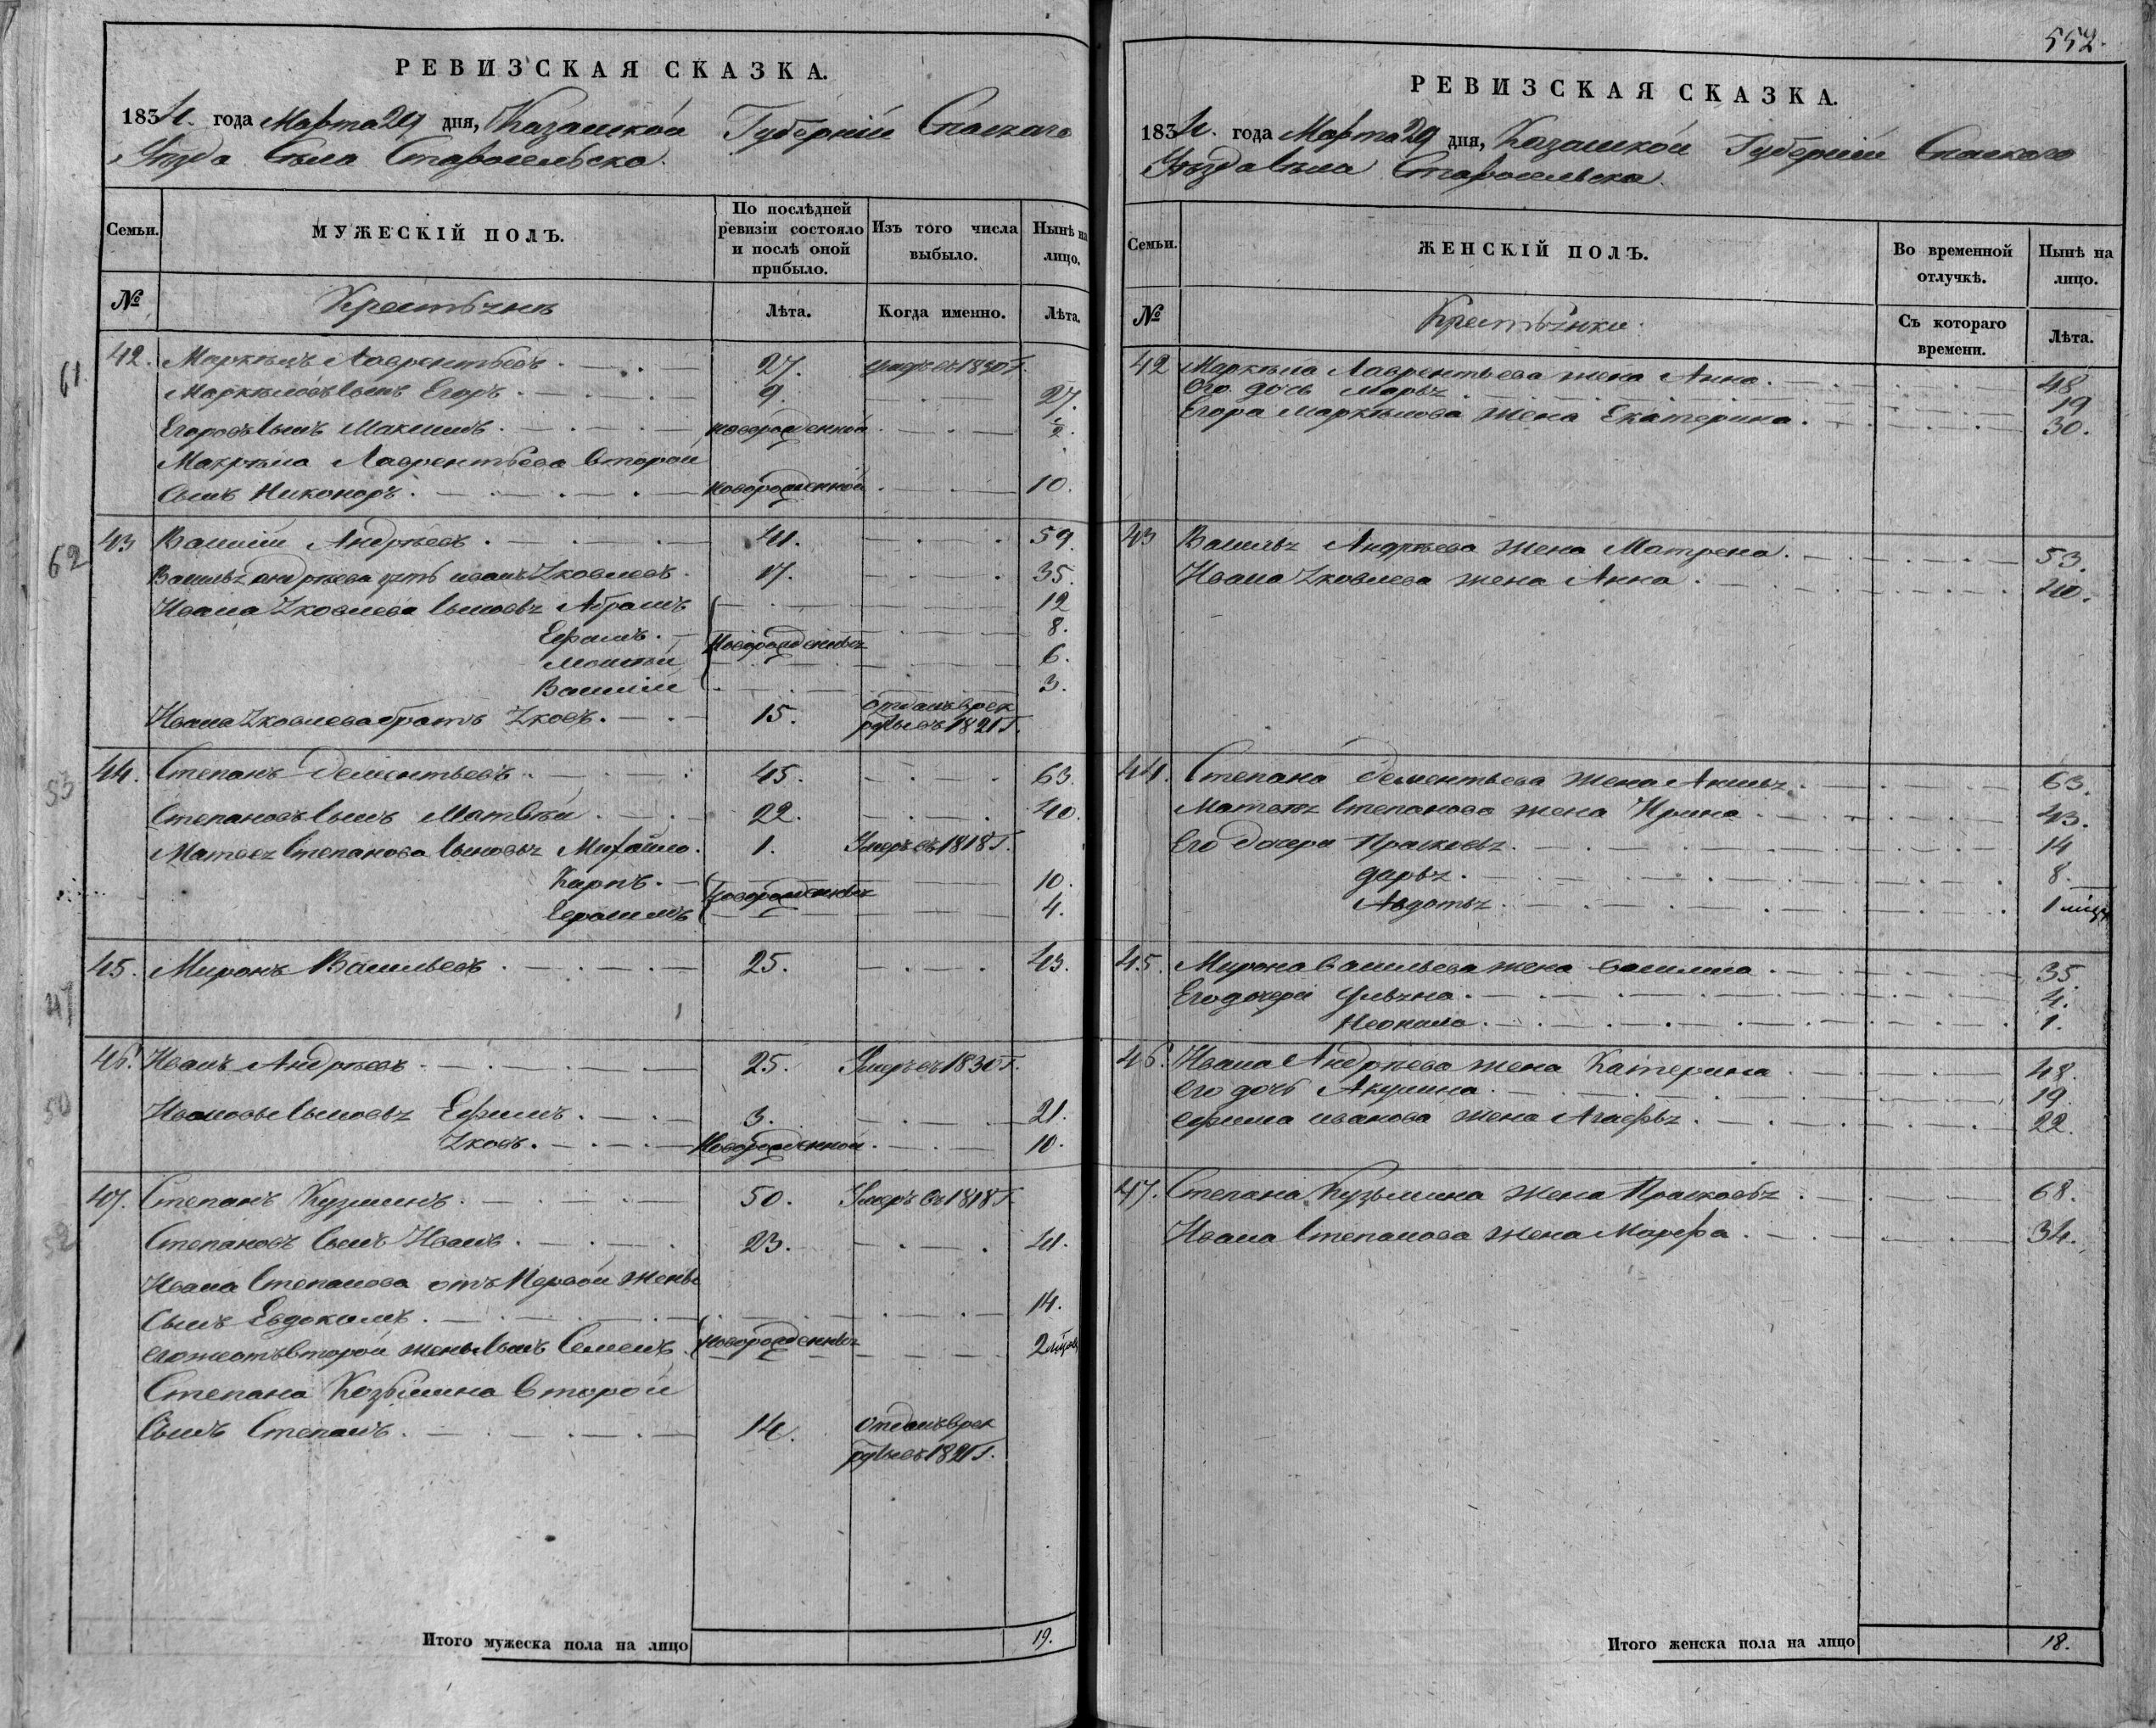 552.
РЕВИЗСКАЯ СКАЗКА.
1834. года Марта 29 дня, Казанской Губернiи Спаскаго
Уѣзда Села Старосельска.
Семьи. МУЖЕСКIЙ ПОЛЪ. По послѣдней ревизiи состояло и послѣ оной прибыло. Изъ того числа выбыло. Нынѣ на лицо.
№ Крестьянъ Лѣта. Когда именно. Лѣта.
61. 42. Маркелъ Лаврентьевъ. 27. умеръ въ 1830 Г.
Маркеловъ сынъ Егоръ. 9. 27.
Егоровъ сынъ Максимъ. новорожденной ½.
Маркела Лаврентьева второй
сынъ Никоноръ. новорожденной 10.
62 43 Василiй Андрѣевъ. 41. 59.
Василья Андрѣева зять иванъ Яковлевъ. 17. 35.
Ивана Яковлева сыновья Абрамъ 12
Ефимъ. новорожденныя 8.
Моисей 6.
Василiй 3.
Ивана Яковлева братъ Яковъ. 15. отданъ врек
руты въ 1821 Г.
53 44. Степанъ Дементьевъ. 45. 63.
Степановъ сынъ Матвѣй 22. 40.
Матвея Степанова сыновья Михайло. 1. Умеръ въ 1818 Г.
Карпъ. новорожденныя 10.
Герасимъ 4.
45. Миронъ Васильевъ 25. 43.
47
46. Иванъ Андрѣевъ 25. Умеръ въ 1830 Г.
50 Ивановы сыновья Ефимъ. 3. 21.
Яковъ. Новорожденной. 10.
47. Степанъ Кузминъ. 50. Умеръ въ 1818 Г.
52 Степановъ Сынъ Иванъ. 23. 41.
Ивана Степанова отъ Первой жены
сынъ Евдокимъ. 14.
его же отъ второй жены сынъ Семенъ. новорожденныя 2
Степана Козьмина второй
Сынъ Степанъ. 14. отданъ врек
руты въ 1821 Г.
Итого мужеска пола на лицо 19.
РЕВИЗСКАЯ СКАЗКА.
1834. года Марта 29 дня, Казанской Губернiи Спаскаго
Уѣзда Села Старосельска.
Семьи. ЖЕНСКIЙ ПОЛЪ. Во временной отлучкѣ. Нынѣ на лицо.
№ Крестьянки. Съ котораго времени. Лѣта.
42 Маркела Лаврентьева жена Анна. 48
его дочь Марья 19
Егора Маркелова жена Екатерина. 30.
43 Василья Андрѣева жена Матрена. 53.
Ивана Яковлева жена Анна. 40.
44. Степана Дементьева жена Аксинья. 63.
Матвея Степанова жена Ирина 43.
Его дочери Прасковья. 14
дарья. 8.
Авдотья. 1
45. Мирона васильева жена василиса. 35
Его дочери Ульяна. 4.
Неонила. 1.
46. Ивана Андрѣева жена Катерина 48.
его дочь Акулина. 19.
ефима иванова жена Агафья. 22.
47. Степана Кузьмина жена Прасковья 68.
Ивана Степанова жена Марфа 34.
Итого женска пола на лицо 18.